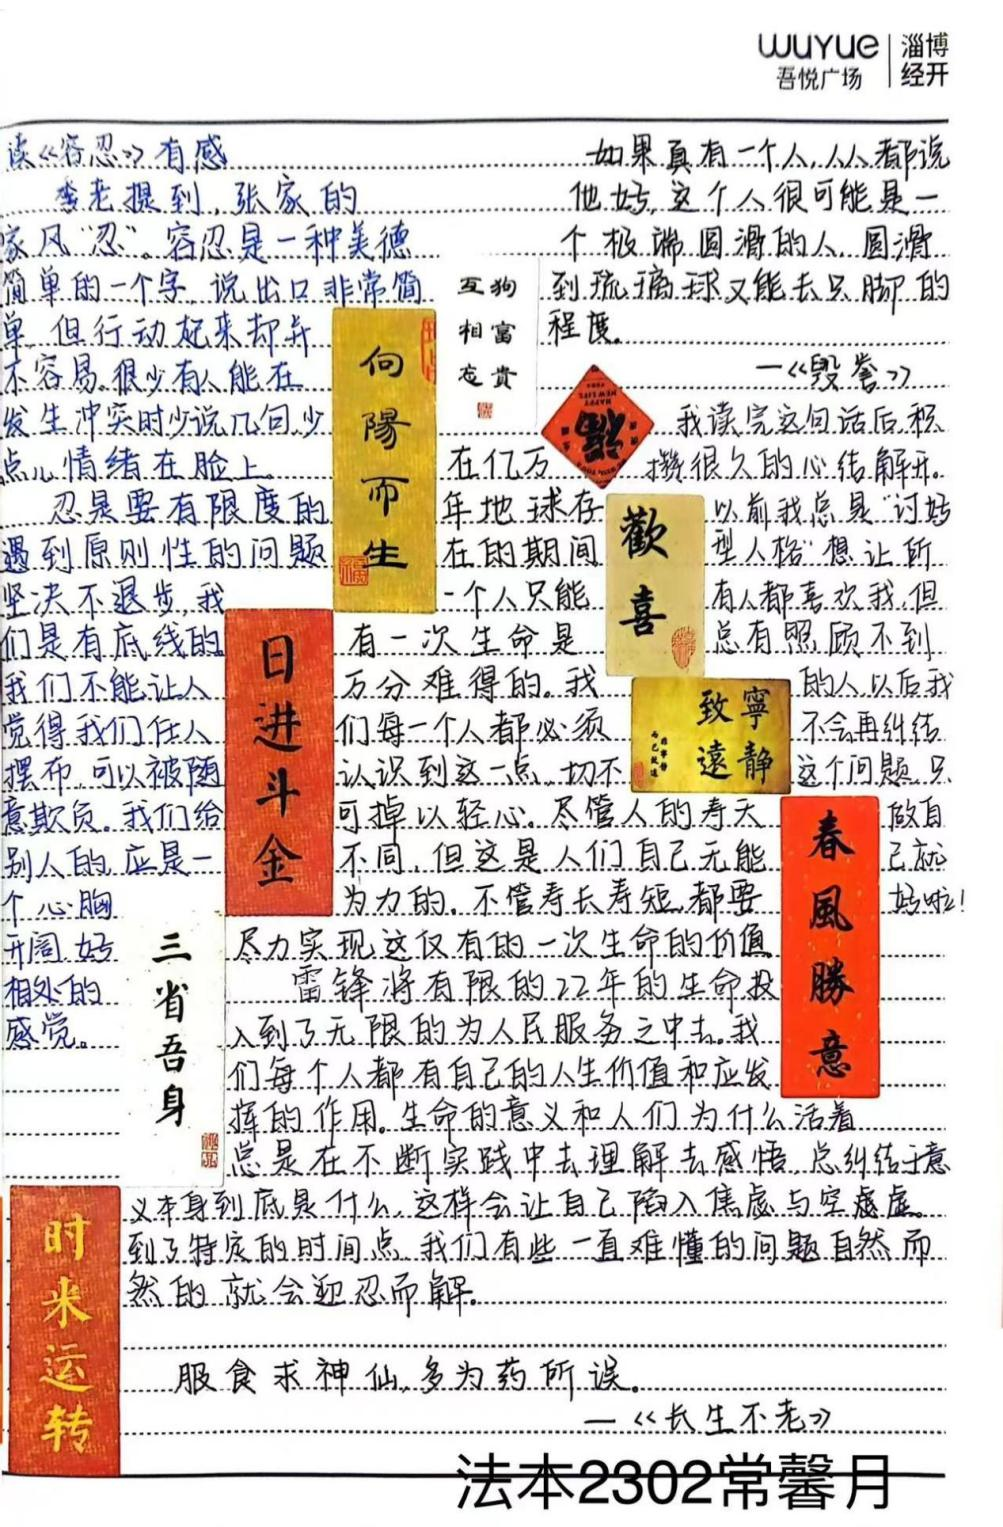 wuyue
吾悦广场
淄博
经开
读《容忍》有感
季老提到,张家的
家风"忍"。容忍是一种美德
简单的一个字,说出口非常简
单,但行动起来却并
不容易。很少有人能在
发生冲突时少说几句少
点儿情绪在脸上。
忍是要有限度的
遇到原则性的问题
坚决不退步,我
们是有底线的
我们不能让人
觉得我们任人
摆布,可以被随
意欺负。我们给
别人的,应是一
个心胸
开阔,好
相处的
感觉。
互狗
相富
忘貴
向陽而生
日进斗金
三省吾身
时来运转
在亿万
年地球存
在的期间
一个人只能
有一次生命是
万分难得的。我
们每一个人都必须
认识到这一点,切不
可掉以轻心。尽管人的寿夭
不同,但这是人们自己无能
为力的。不管寿长寿短,都要
尽力实现这仅有的一次生命的价值
雷锋将有限的22年的生命投
入到了无限的为人民服务之中去。我
们每个人都有自己的人生价值和应发
挥的作用。生命的意义和人们为什么活着
总是在不断实践中去理解去感悟,总纠结于意
义本身到底是什么,这样会让自己陷入焦虑与空虚。
到了特定的时间点,我们有些一直难懂的问题自然而
然的就会迎忍而解。
服食求神仙,多为药所误。
—《长生不老》
如果真有一个人,人人都说
他好,这个人很可能是一
个极端圆滑的人,圆滑
到琉璃球又能长只脚的
程度。
—《毁誉》
我读完这句话后积
攒很久的心结解开。
以前我总是"讨好
型人格"想让所
有人都喜欢我,但
总有照顾不到
的人,以后我
不会再纠结
这个问题,只
做自
己就
好啦!
HAPPY
NEW LIFE
福
歡喜
寧靜
致遠
春風勝意
法本2302常馨月